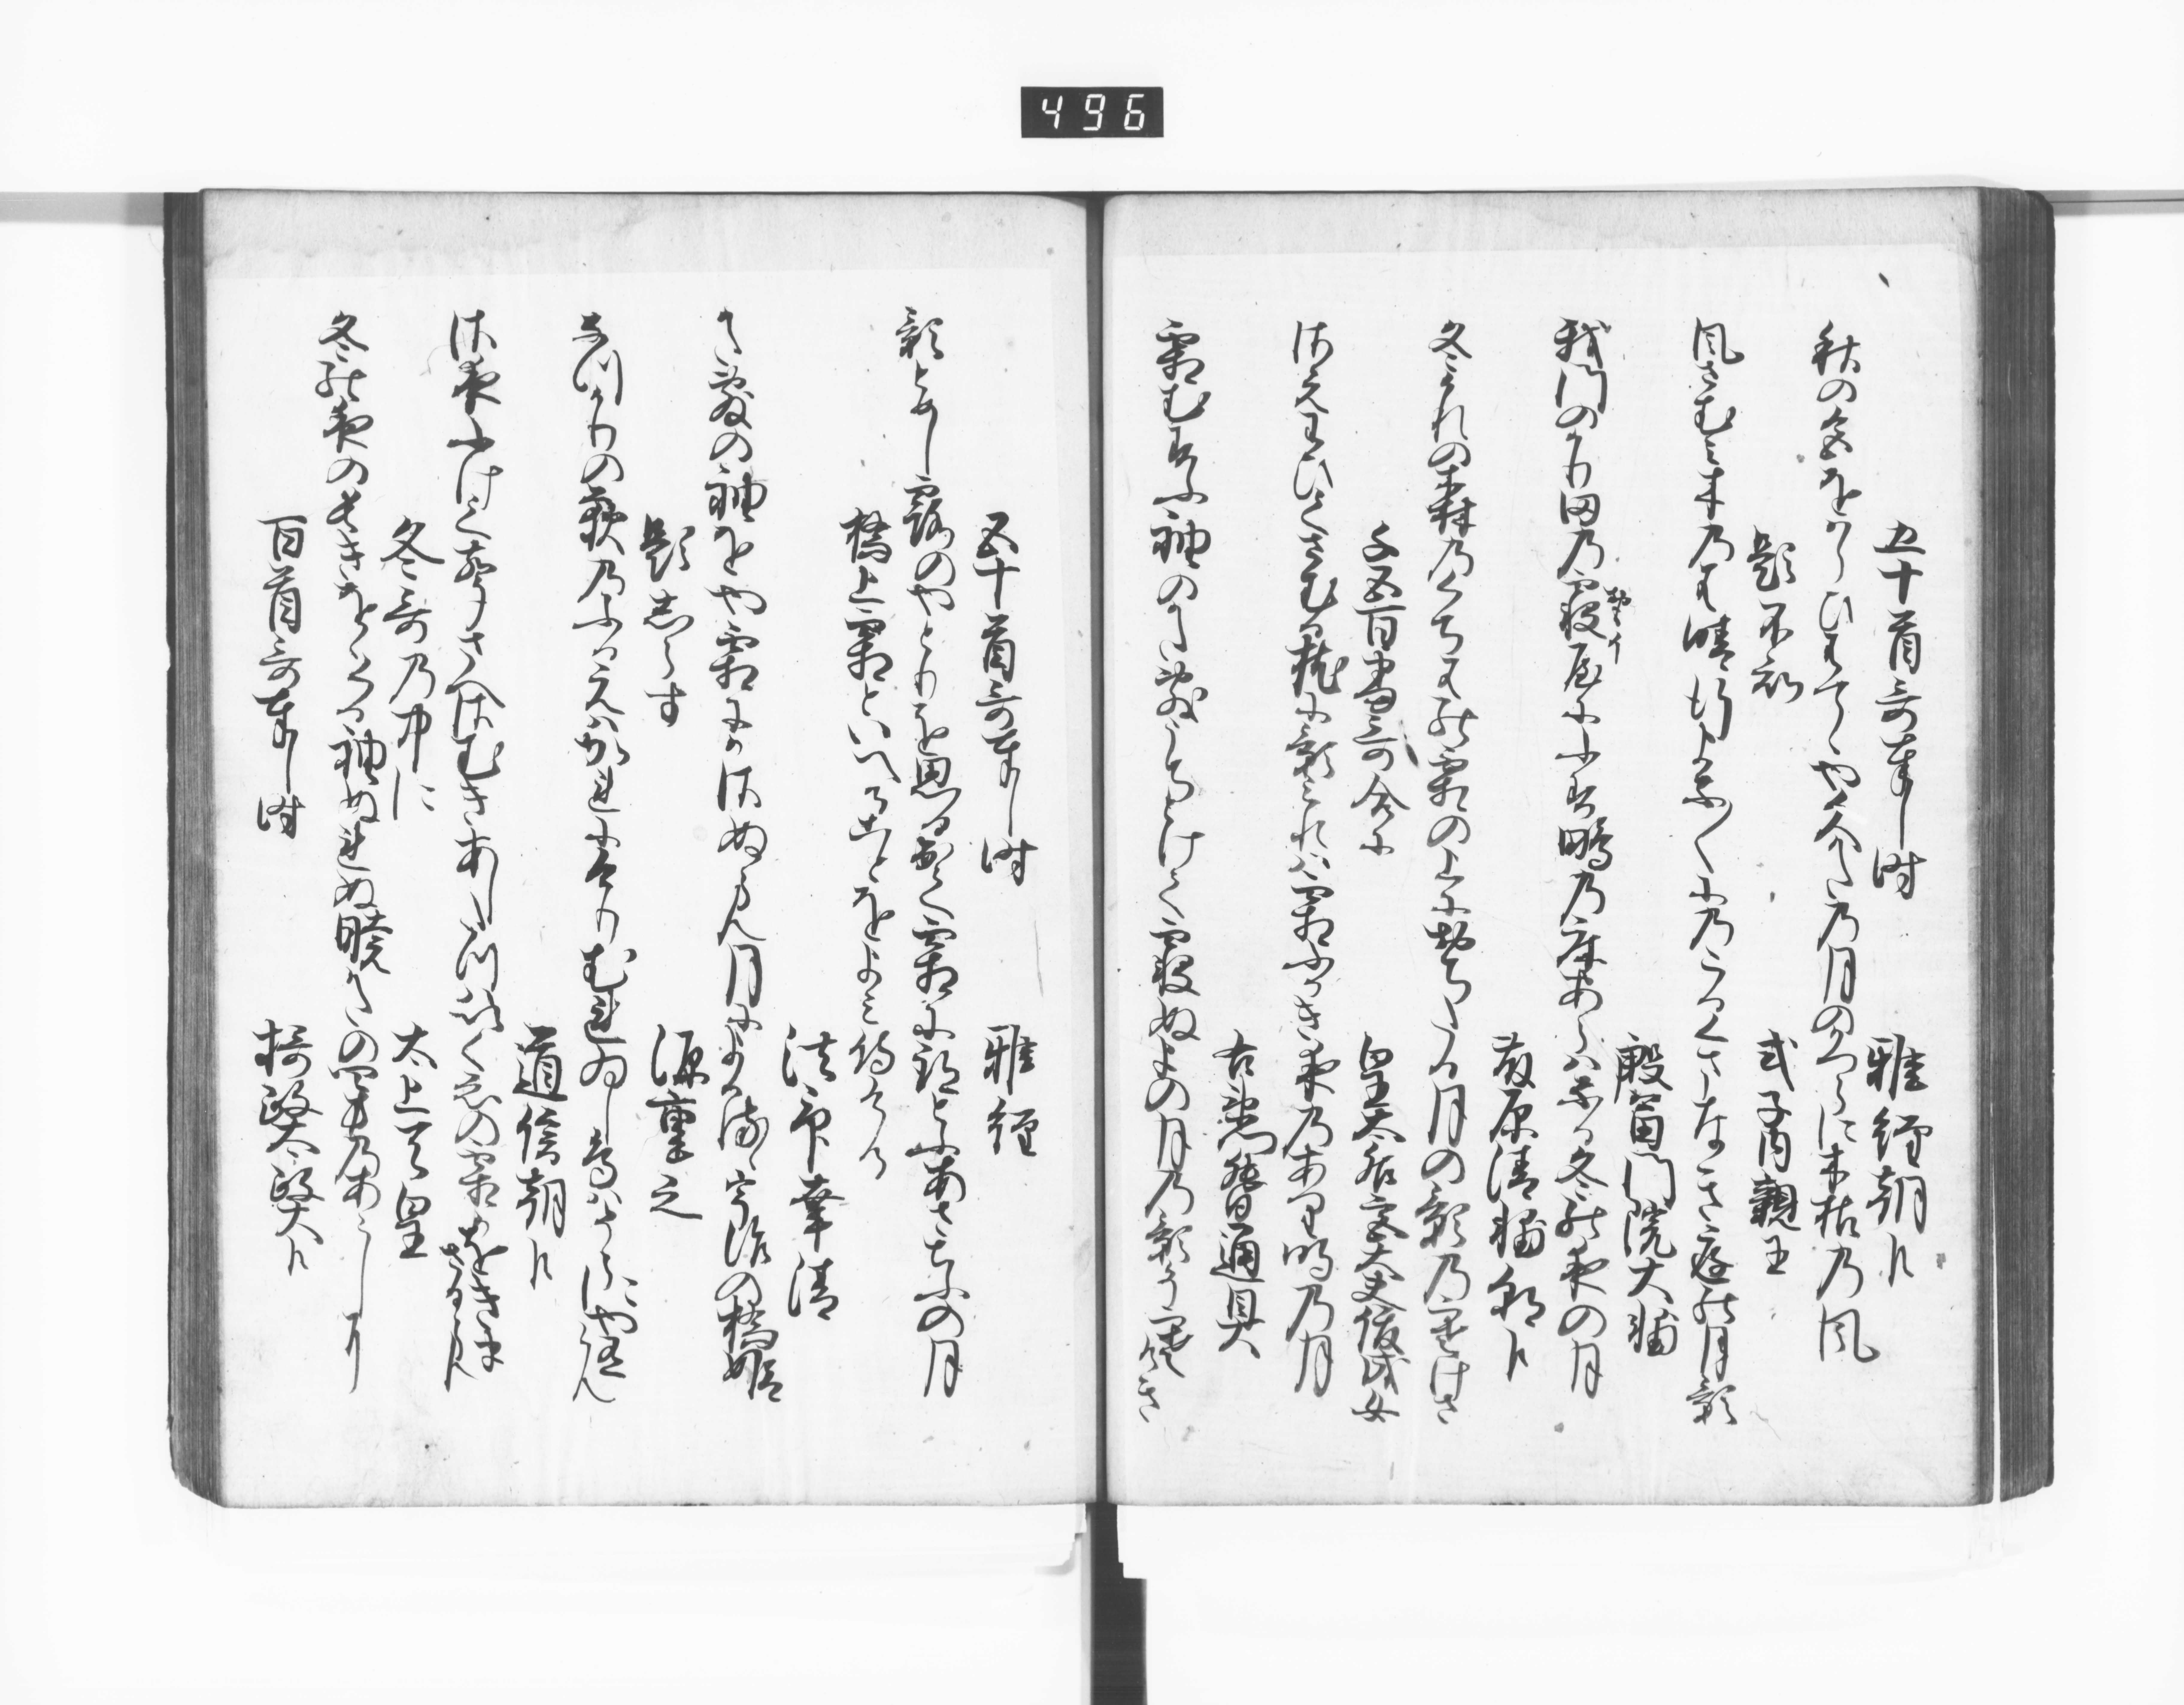 496
五十首哥奉し時　雅経朝臣
秋の色をはらひはてゝや久かたの月のかつらに木枯の風
題不知　式子内親王
風さむみ木のは晴行よな〱にのこるくまなき庭の月影
殷富門院大輔
我門のかり田の寝屋にふす鴫の床あらはなる冬の夜の月
藤原清輔朝臣
冬かれの森のくちはの霜の上におちたる月の影の寒けさ
千五百番哥合に　皇太后宮大夫俊成女
さえわひてさむる枕に影みれは霜ふかき夜のあり明の月
右衛門督通具
霜むすふ袖のかたしきうちとけて寝ぬよの月の影そ寒けき
五十首哥奉し時　雅経
影とめし露のやとりを思出て霜に跡とふあさちふの月
橋上霜といへることをよみ侍ける　法印幸清
かた敷の袖をや霜にかさぬらん月によかるゝ宇治の橋姫
題しらす　源重之
なつかりの荻のふるえはかれにけりむれゐし鳥はそらにやあるらん
道信朝臣
さ夜ふけて声さへさむきあしたつはいくへの霜かをきまさるらん
冬哥の中に　太上天皇
冬の夜のなかきをゝくる袖ぬれぬ暁かたの四方のあらしに
百首哥奉し時　摂政太政大臣